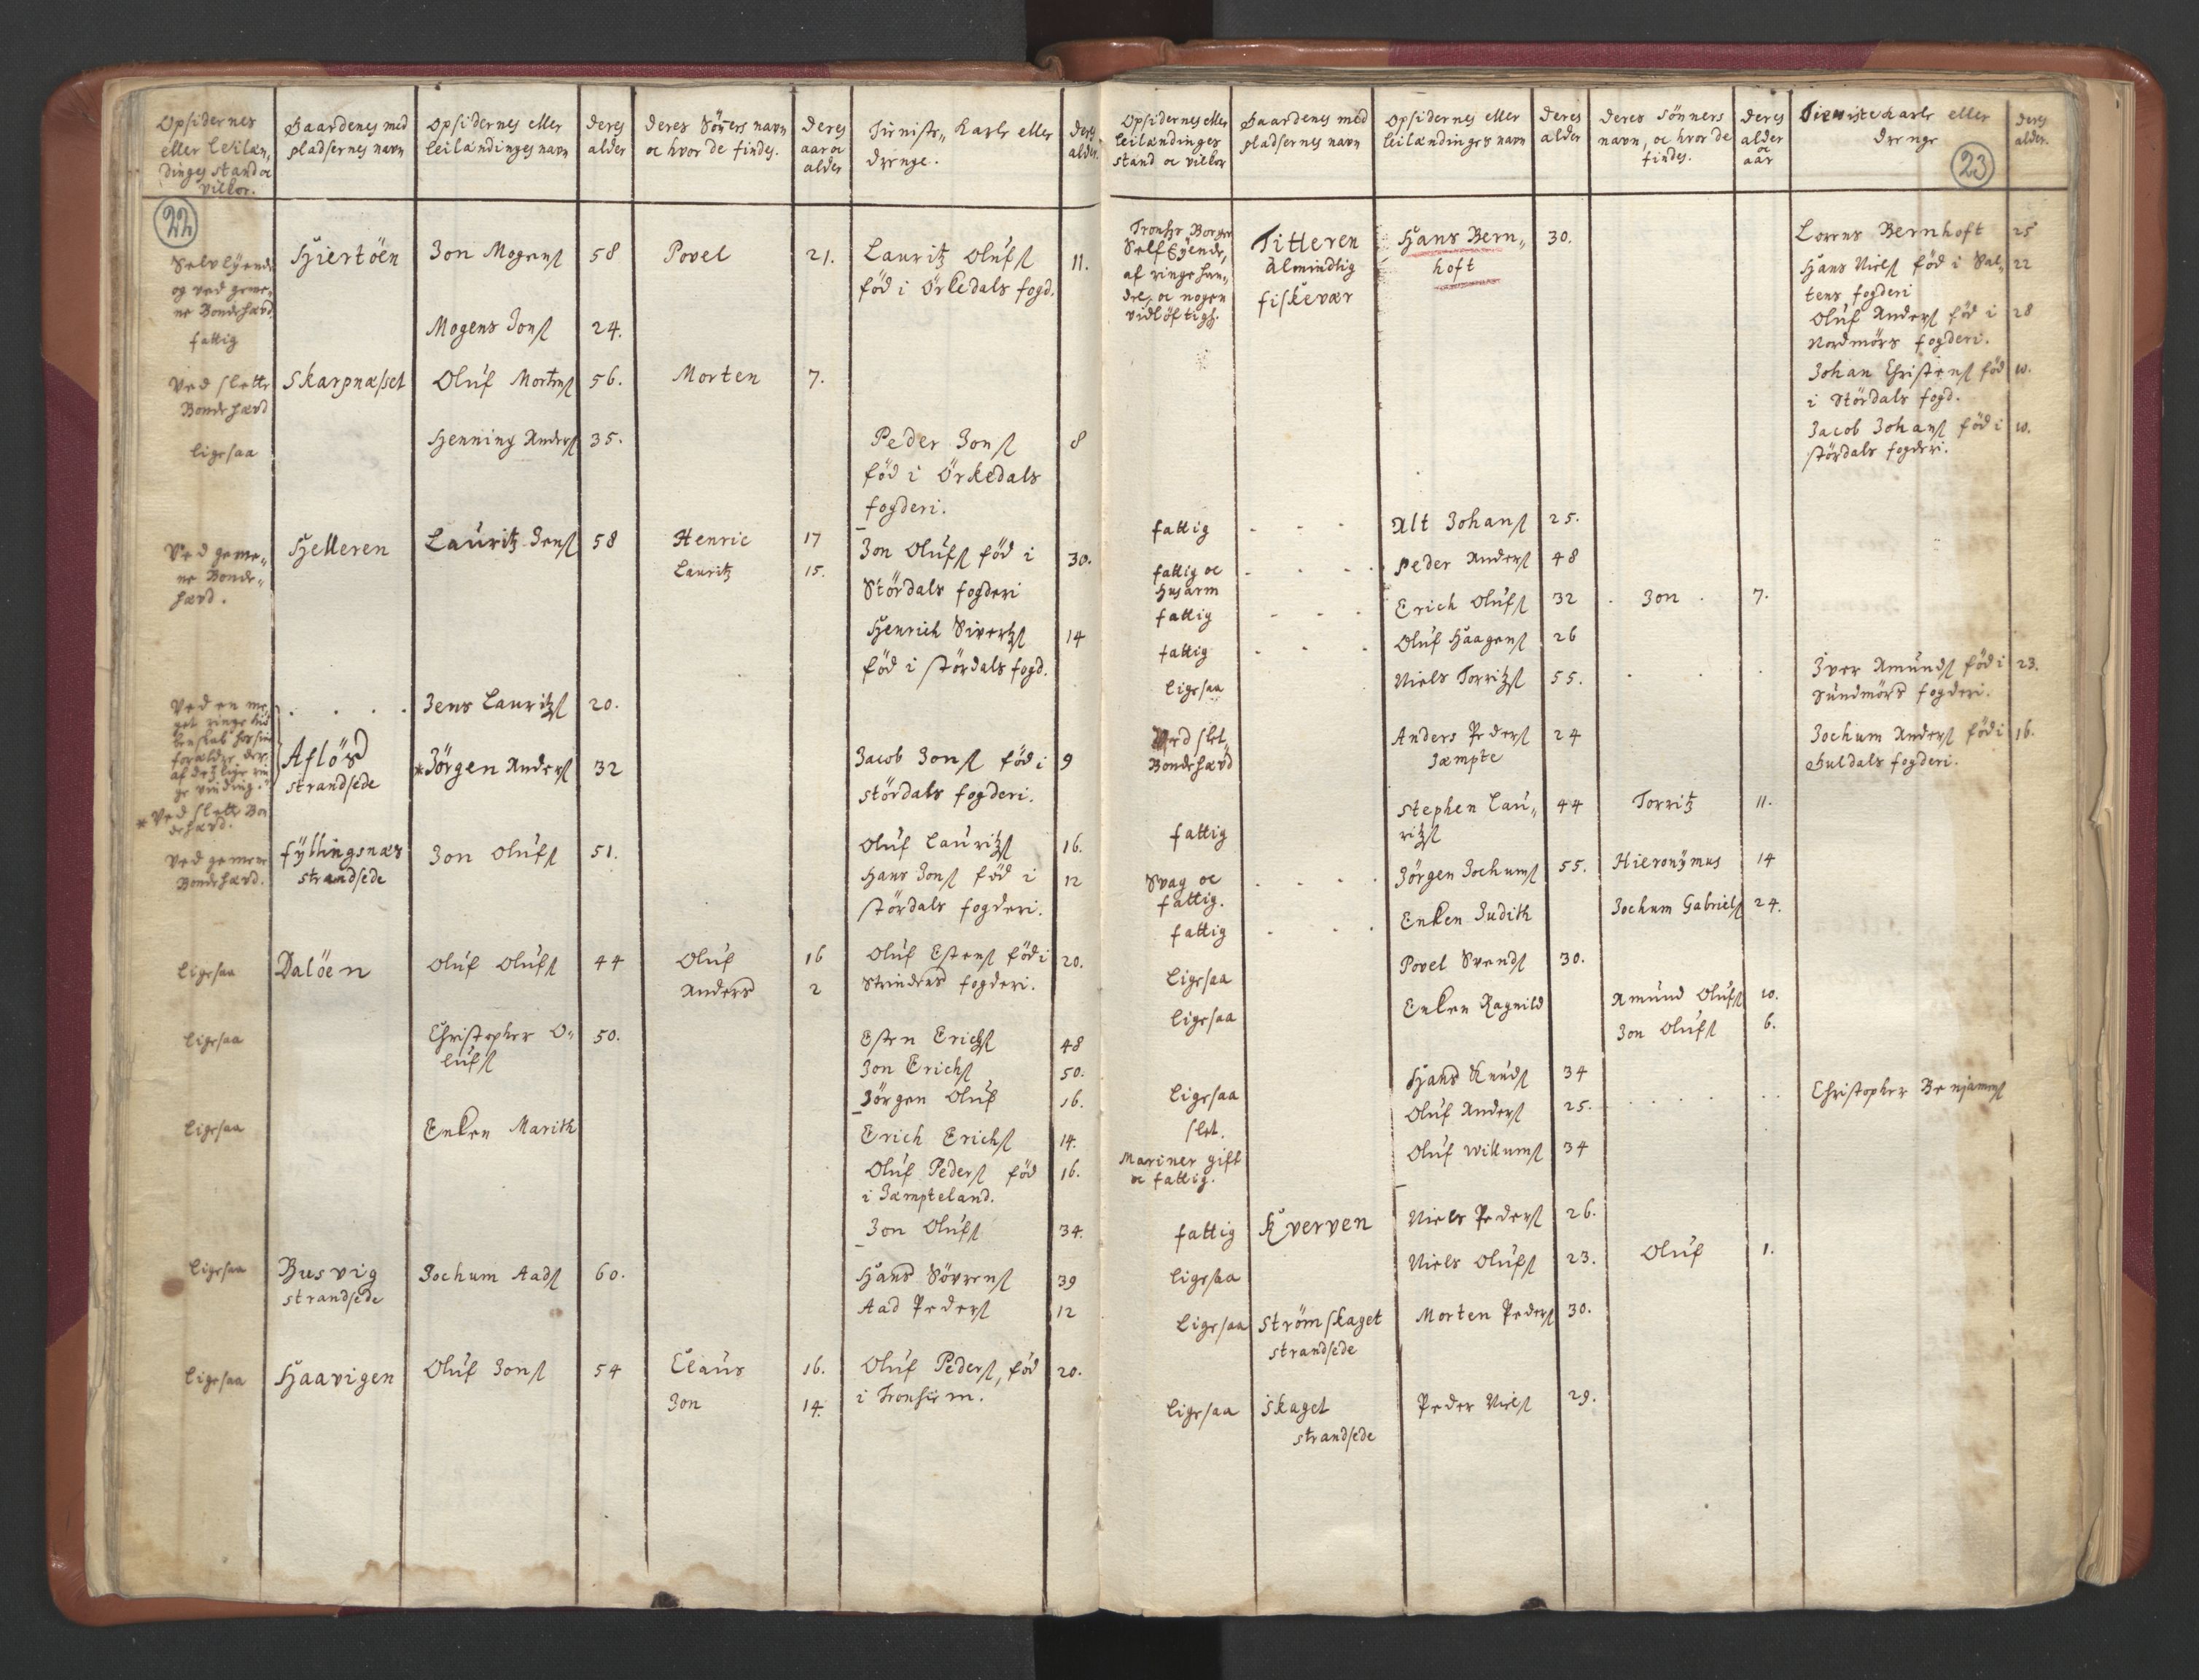 Opsidernes
eller Leilæn,
dinges stand oc
vilkor.
Gaardenes med
pladsernes navn
Opsidernes eller
leilændinges navn
deres
alder
deres Söners navn
oc hvor de findes.
deres
aar oc
alder
Tieniste Karle eller
drenge.
deres
alder.
22
Selv Eÿende
og ved geme„
ne Bondehæld
fattig
Hiertöen
Jon Mogensſ
58
Povel
21.
Lauritz Olufsſ
föd i Örkedals fogd.
11.
Mogens Jonſ
24.
Ved slette
Bonde hæld
Skarpnæsset
Oluf Mortenſ
56.
Morten
7.
ligesaa
Henning Anderſ
35.
Peder Jonſ
föd i Örkedals
fogderi.
8
Ved geme„
ne Bonde„
hæld.
Helleren
Lauritz Jenſ
58
Henric
17
Lauritz
15.
Jon Olufſ föd i
Stördals fogderi
30.
Henrich Sivertzſ
föd i stördals fogd.
14
Ved en me
get ringe
forældre der
af deslige rin
ge vinding.
. . . .
Jens Lauritzſ
20.
Afløs
strandsede
*Jörgen Anderſ
32
Jacob Jonſ föd i
stördals fogderi.
9
* Ved slette Bon
dehæld.
Ved gemene
Bondehæld.
fÿllingsnæs
strandsede
Jon Olufſ
51.
Oluf Lauritzſ
16.
Hans Jonſ föd i
stördals fogderi.
12
ligesaa
Dalöen
Oluf Olufſ
44
Oluf
16
Anders
2
Oluf Estenſ föd i
Strindens fogderi.
20.
ligesaa
Christopher O„
lufſ
50.
Esten Erichſ
48
Jon Erichſ
50.
Jörgen Oluf
16.
ligesaa
Enken Marith
Erich Erichſ
14.
Oluf Pederſ föd
i Jæmpteland.
16.
Jon Olufſ
34.
ligesaa
Busvig
strandsede
Jochum Aadſ
60.
Hans Sövrenſ
39
Aad Pederſ
12
ligesaa
Haavigen
Oluf Jonſ
54
Claus
16.
Jon
14.
Oluf Pederſ, föd
i Tronhiem.
20.
Opsidernes eller
leilændinges
stand oc vilkor
Gaardenes med
pladsernes navn
Opsidernes eller
leilændinges navn
deres
alder
deres Sönners
navn, oc hvor de
findes.
deres
alder
oc
aar
Tieniste Karle eller
drenge
deres
alder.
23
Tronhs Borger
Self Eÿende,
af ringe han„
del, oc nogen
vidlöftigh.
Titteren
almindlig
fiskevær
Hans Bern„
hoft
30.
Lorens Bernhoft
25
Hans Nielſ föd i Sal„
tens fogderi
22
Oluf Anderſ föd i
Nordmörs fogderi.
28
Johan Christenſ föd
i Stördals fogd.
10.
Jacob Johanſ föd i
stördals fogderi.
10.
fattig
. . .
Alt Johanſ
25.
fattig oc
husarm
. . . .
Peder Anderſ
48
fattig
. . .
Erich Olufſ
32
. Jon .
7.
fattig
. . .
Oluf Haagenſ
26
ligesaa
Niels Torritzſ
55.
. . .
Iver Amundſ föd i
Sundmörs fogderi.
23.
Ved slet
Bondehæld
Anders Pederſ
Jæmpte
24
Jochum Anderſ föd i
Guldals fogderi.
16.
fattig
Stephen Lau„
ritzſ
44
Torritz
11.
Svag oc
fattig.
. . . .
Jörgen Jochumſ
55.
Hieronÿmus
14
fattig
. . .
Enken Judith
Jochum Gabrielſ
24.
ligesaa
Povel Svendſ
30.
ligesaa
Enken Ragnild
Amund Olufſ
10.
Jon Olufſ
6.
ligesaa
Hans Knudſ
34
slet.
Oluf Anderſ
25.
. . . . . .
Christopher Benjamenſ
Mariner gift
oc fattig.
Oluf Willumſ
34
fattig
Kverven
Niels Pederſ
26.
ligesaa
Niels Olufſ
23.
Oluf
1.
ligesaa
Strömskaget
strandsede
Morten Pederſ
30.
ligesaa
Skaget
strandsede
Peder Nielſ
29.